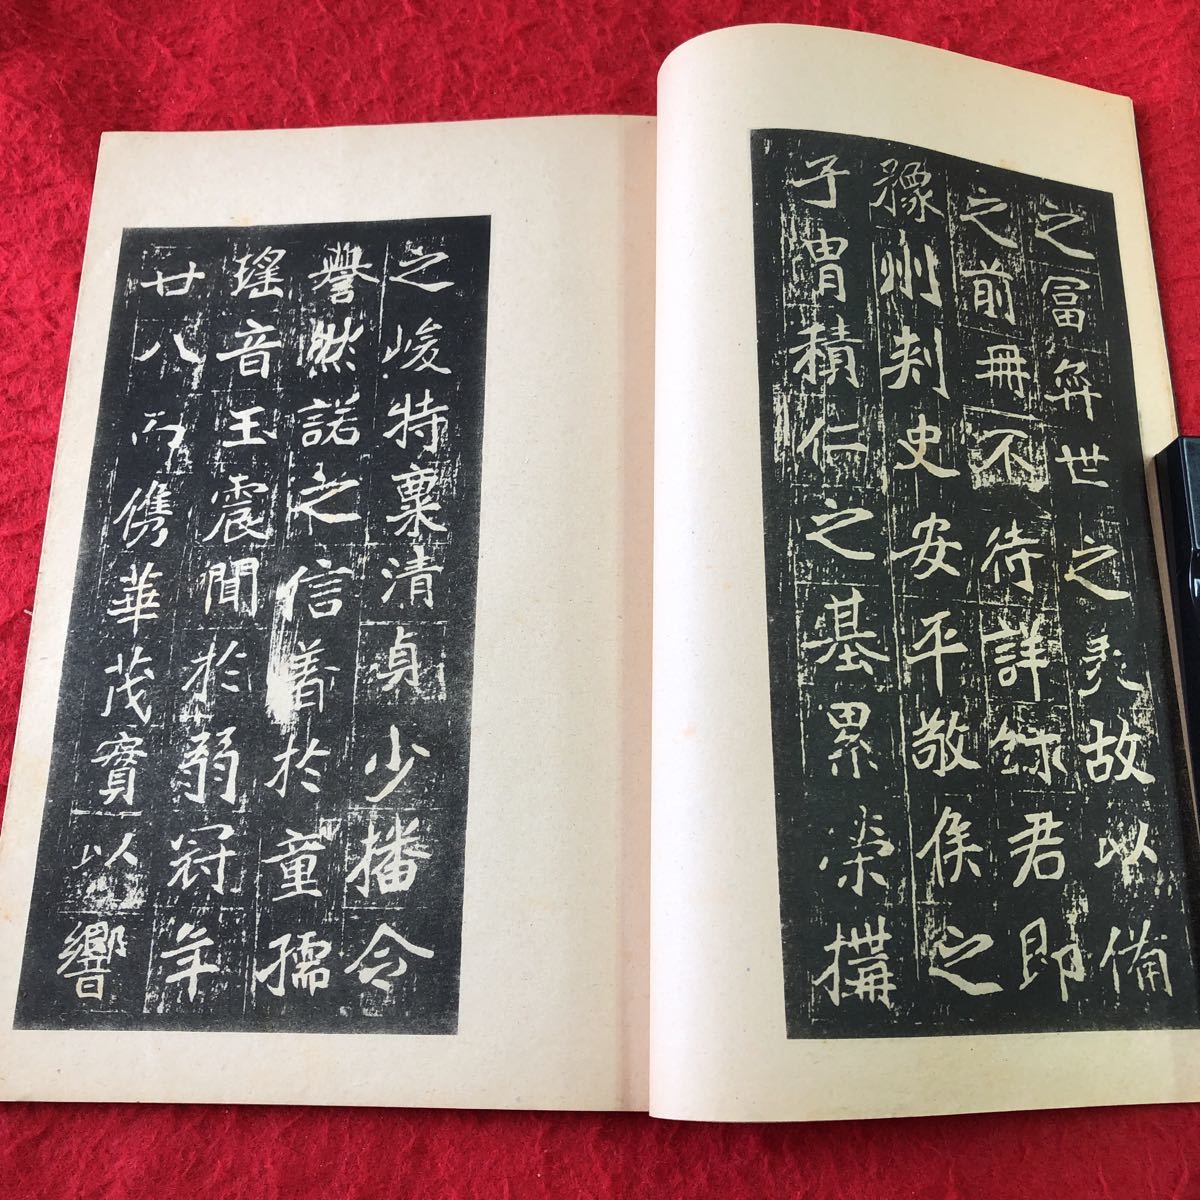 之冨弈世之美故以備
之前冊不待詳錄君即
豫州刺史安平敬侯之
子冑積仁之基累榮構
之峻特稟清貞少播令
譽然諾之信著於童孺
瑤音玉震聞於弱冠年
廿八而儁華茂實以響